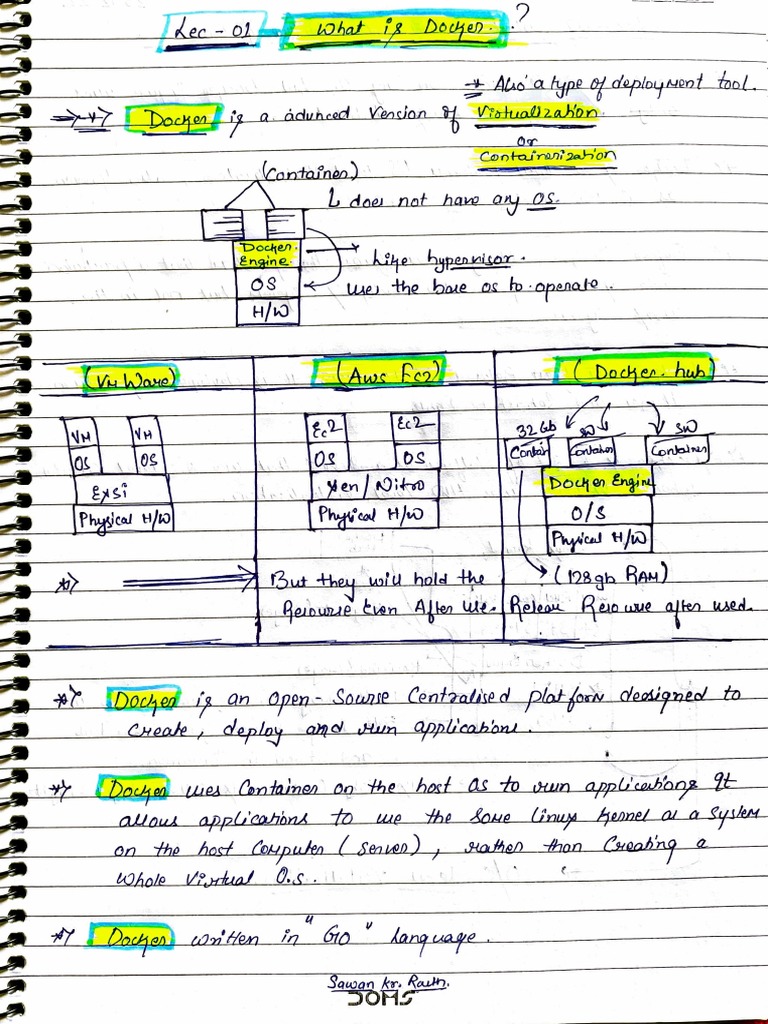 Lec - 01 What is Docker. ?
* Also a type of deployment tool.
Docker is a advnced Version of Virtualization
or
Containerization
(Container)
does not have any OS.
Docker Engine
Like hypervisor.
OS
uses the base os to operate.
H/W
(VM Ware)
(Aws Ec2)
(Docker hub)
VM VM
OS OS
Exsi
Physical H/W
Ec2 Ec2
OS OS
Xen / Nitro
Physical H/W
32Gb SW SW
Contain Container Container
Docker Engine
O/S
Physical H/W
(128gb RAM)
But they will hold the
Resourse Even After Use.
Releas Resourse after used.
Docker is an open-Sourse Centralised platform deasigned to
Create, deploy and run applications.
Docker uses Container on the host OS to run applications It
allows applications to use the Same linux Kernel as a System
on the host Computer (Server), rather than Creating a
whole Virtual O.s.
Docker written in "GO" Language.
Sawan Kr.
DOMS